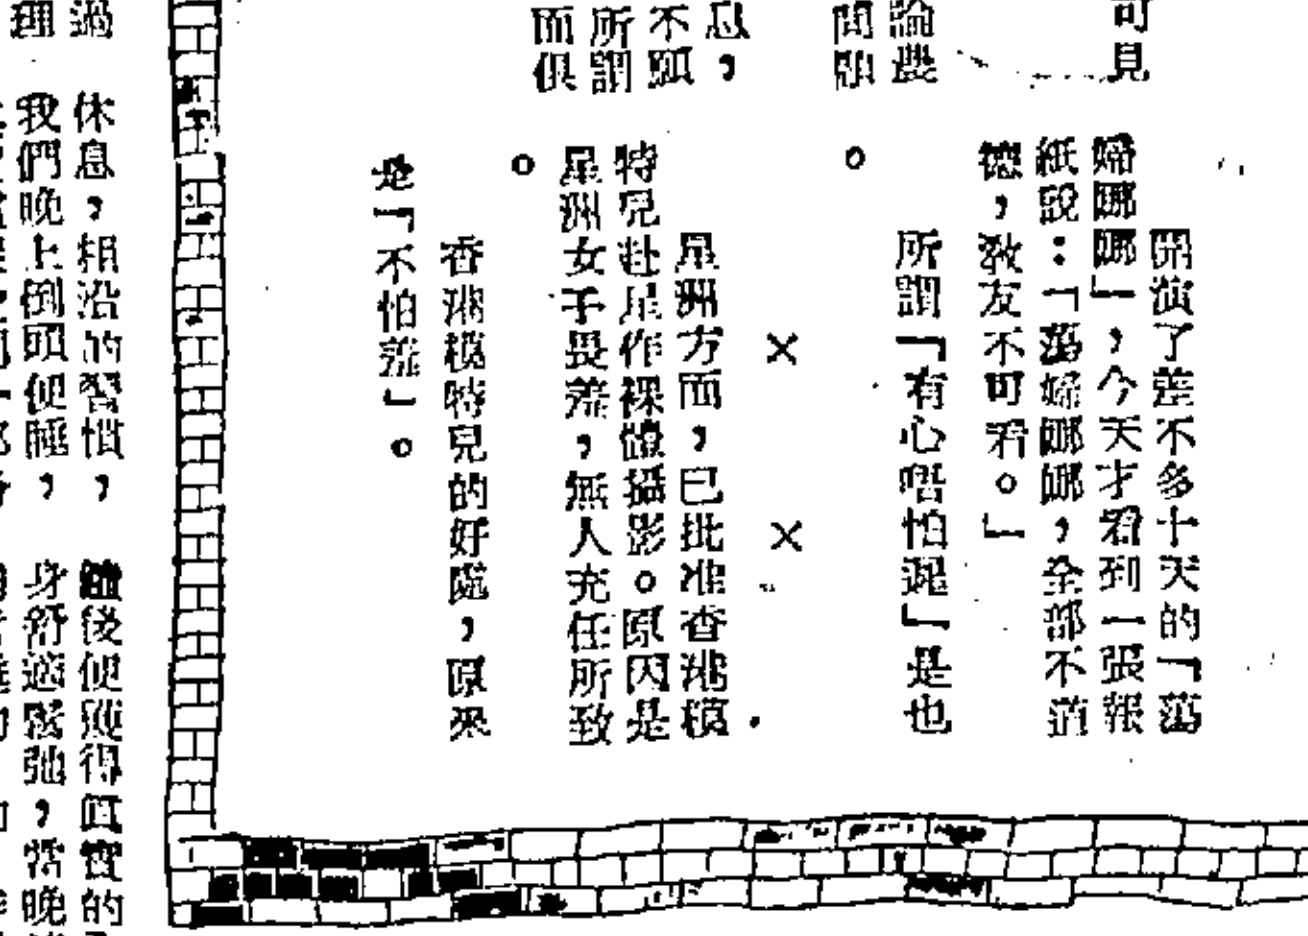 可見
論農
問題
息，
不願
所謂
而俱
開演了差不多十天的「蕩
婦娜娜」，今天才看到一張報
紙說：「蕩婦娜娜，全部不道
德，教友不可看。」
所謂「有心唔怕遲」是也
。
×　×
星洲方面，已批准香港模
特兒赴星作裸體攝影。原因是
星洲女子畏羞，無人充任所致
。
香港模特兒的好處，原來
是「不怕羞」。
過
理
休息，相沿的習慣，
我們晚上倒頭便睡，
後便獲得眞實的
身舒適鬆弛，當晚